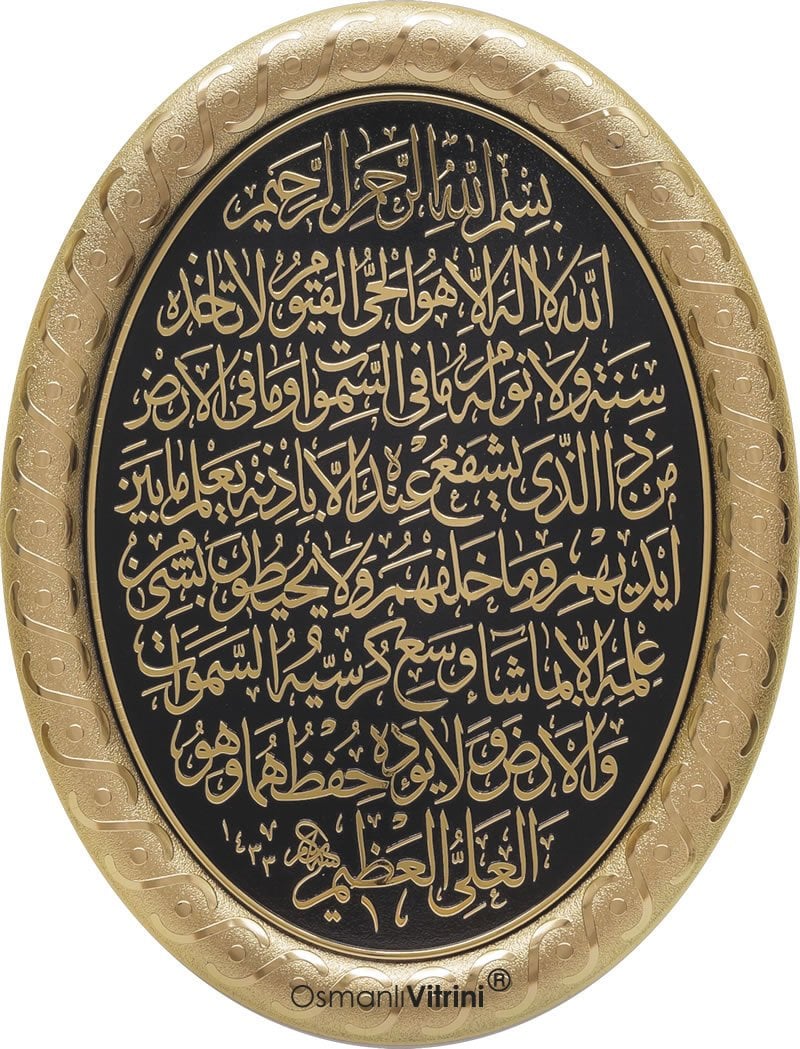 بسم الله الرحمن الرحيم
الله لا اله الا هو الحي القيوم لا تاخذه
سنة ولا نوم له ما في السموات وما في الارض
من ذا الذي يشفع عنده الا باذنه يعلم ما بين
ايديهم وما خلفهم ولا يحيطون بشئ من
علمه الا بما شاء وسع كرسيه السموات
والارض ولا يؤده حفظهما وهو
العلي العظيم
١٤٣٣
OsmanlıVitrini®